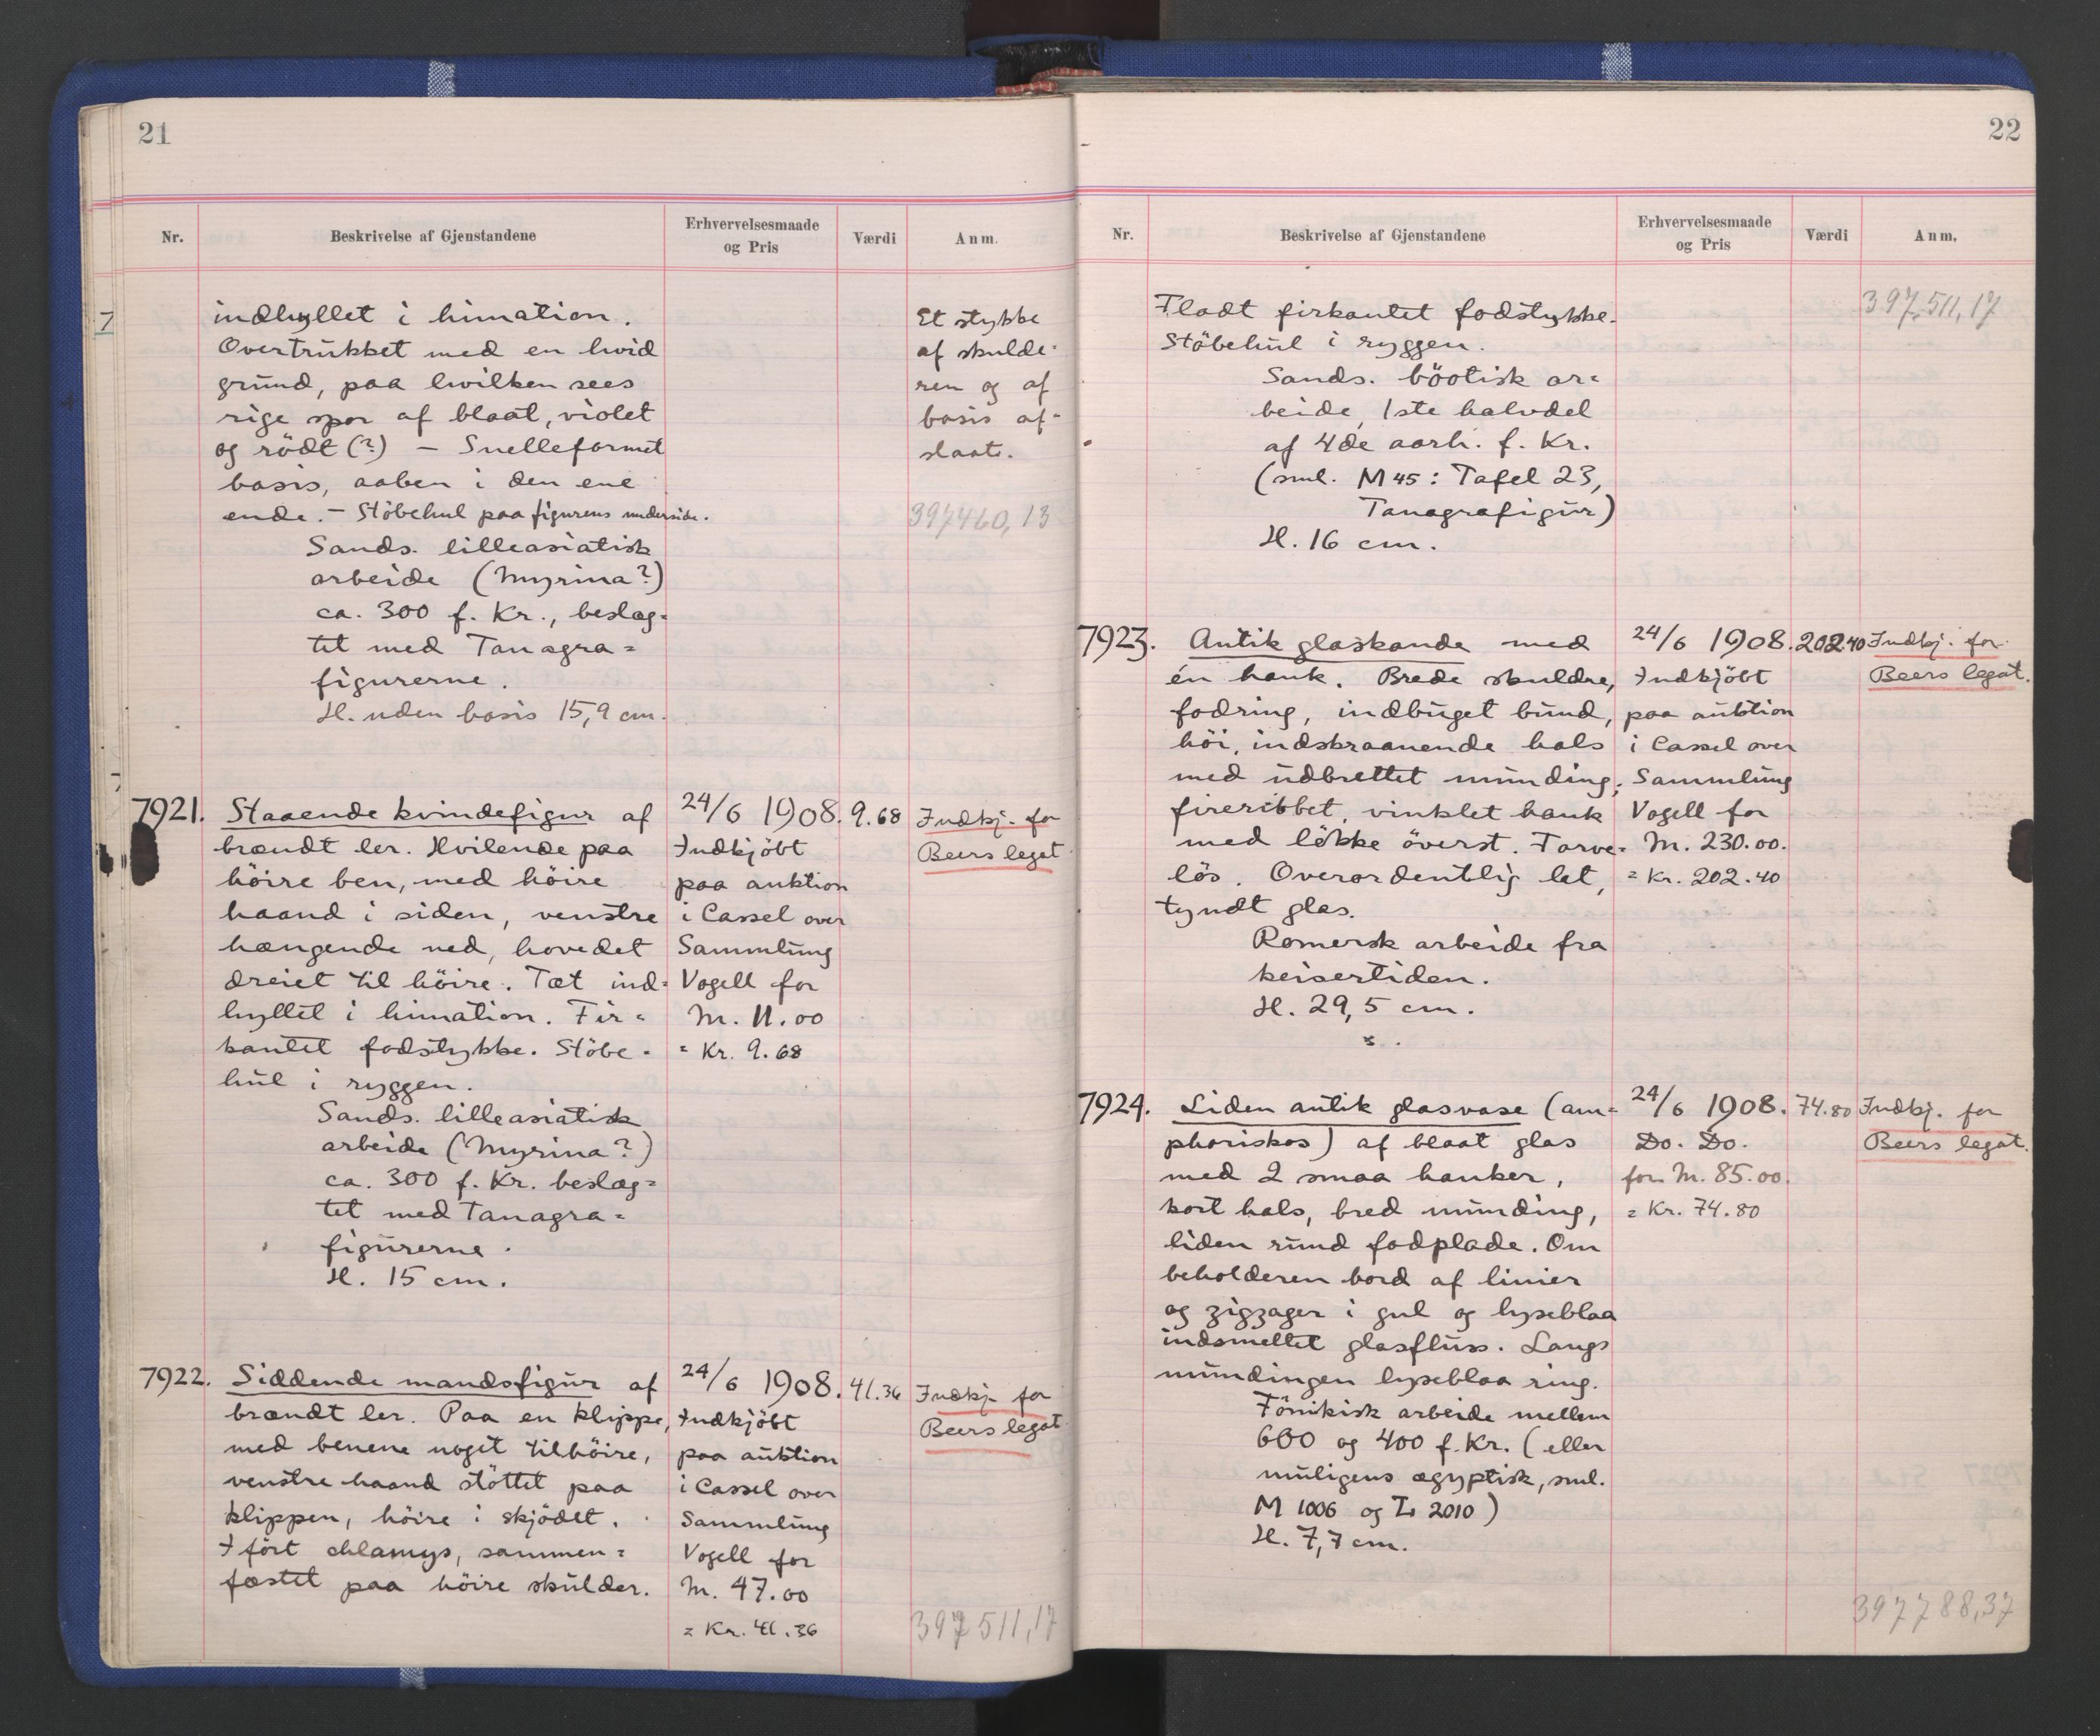 21
Nr.
Beskrivelse af Gjenstandene
Erhvervelsesmaade
og Pris
Værdi
Anm.
7
indhyllet i himation.
Overtrukket med en hvid
grund, paa hvilken sees
rige spor af blaat, violet
og rödt (?) – Snelleformet
basis, aaben i den ene
ende. – Stöbehul paa figurens underside.
Sands. lilleasiatisk
arbeide (Myrina?)
ca. 300 f. Kr., beslæg=
tet med Tanagra=
figurerne.
H. uden basis 15,9 cm.
Et stykke
af skulde=
ren og af
basis af=
slaat.
397460,13
7921.
Staaende kvindefigur af
brændt ler. Hvilende paa
höire ben, med höire
haand i siden, venstre
hængende ned, hovedet
dreiet til höire. Tæt ind=
hyllet i himation. Fir=
kantet fodstykke. Stöbe=
hul i ryggen.
Sands. lilleasiatisk
arbeide (Myrina?)
ca. 300 f. Kr. beslæg=
tet med Tanagra=
figurerne.
H. 15 cm.
24/6 1908.
Indkjöbt
paa auktion
i Cassel over
Sammlung
Vogell for
M. 11.00
= Kr. 9.68
9.68
Indkj. for
Beers legat
7922.
Siddende mandsfigur af
brændt ler. Paa en klippe,
med benene noget tilhöire,
venstre haand stöttet paa
klippen, höire i skjödet.
Ifört chlamys, sammen=
fæstet paa höire skulder.
24/6 1908.
Indkjöbt
paa auktion
i Cassel over
Sammlung
Vogell for
M. 47.00
= Kr. 41.36
41.36
Indkj. for
Beers legat
397511,17
22
Nr.
Beskrivelse af Gjenstandene
Erhvervelsesmaade
og Pris
Værdi
Anm.
397,511,17
Fladt firkantet fodstykke.
Stöbehul i ryggen.
Sands. böotisk ar=
beide, 1ste halvdel
af 4de aarh. f. Kr.
(sml. M 45: Tafel 23,
Tanagrafigur)
H. 16 cm.
7923.
Antik glaskande med
én hank. Brede skuldre,
fodring, indbuget bund,
höi, indskraanende hals
med udbrettet munding;
fireribbet, vinklet hank
med lökke överst. Farve=
lös. Overordentlig let,
tyndt glas.
Romersk arbeide fra
keisertiden.
H. 29,5 cm.
24/6 1908.
Indkjöbt
paa auktion
i Cassel over
Sammlung
Vogell for
M. 230.00.
= Kr. 202.40
202.40
Indkj. for
Beers legat.
7924.
Liden antik glasvase (am=
phoriskos) af blaat glas
med 2 smaa hanker,
kort hals, bred munding,
liden rund fodplade. Om
beholderen bord af linier
og zigzager i gul og lyseblaa
indsmeltet glasfluss. Langs
mundingen lyseblaa ring.
Fönikisk arbeide mellem
600 og 400 f. Kr. (eller
muligens ægyptisk, sml.
M 1006 og L 2010)
H. 7,7 cm.
24/6 1908.
Do. Do.
for M. 85.00.
= Kr. 74.80
74.80
Indkj. for
Beers legat.
397788,37